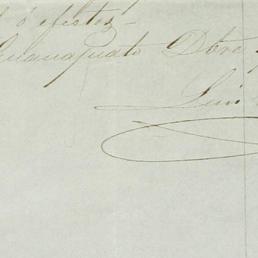 ó efectos
Guanajuato Dbre
Luis